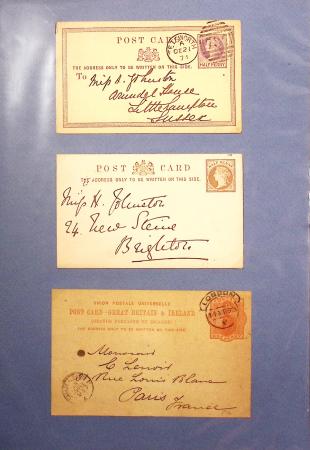 POST CARD
THE ADDRESS ONLY TO BE WRITTEN ON THIS SIDE.
PETWORTH
DE 21
71
HALFPENNY
To Miss A. Johnston
Arundel House
Littlehampton
Sussex
POST CARD
THE ADDRESS ONLY TO BE WRITTEN ON THIS SIDE.
Miss H. Johnston
24 New Steine
Brighton
UNION POSTALE UNIVERSELLE
POST CARD - GREAT BRITAIN & IRELAND
(GRANDE BRETAGNE ET IRLANDE)
THE ADDRESS ONLY TO BE WRITTEN ON THIS SIDE.
LONDON
Monsieur
C Lenoir
Rue Louis Blanc
Paris
France